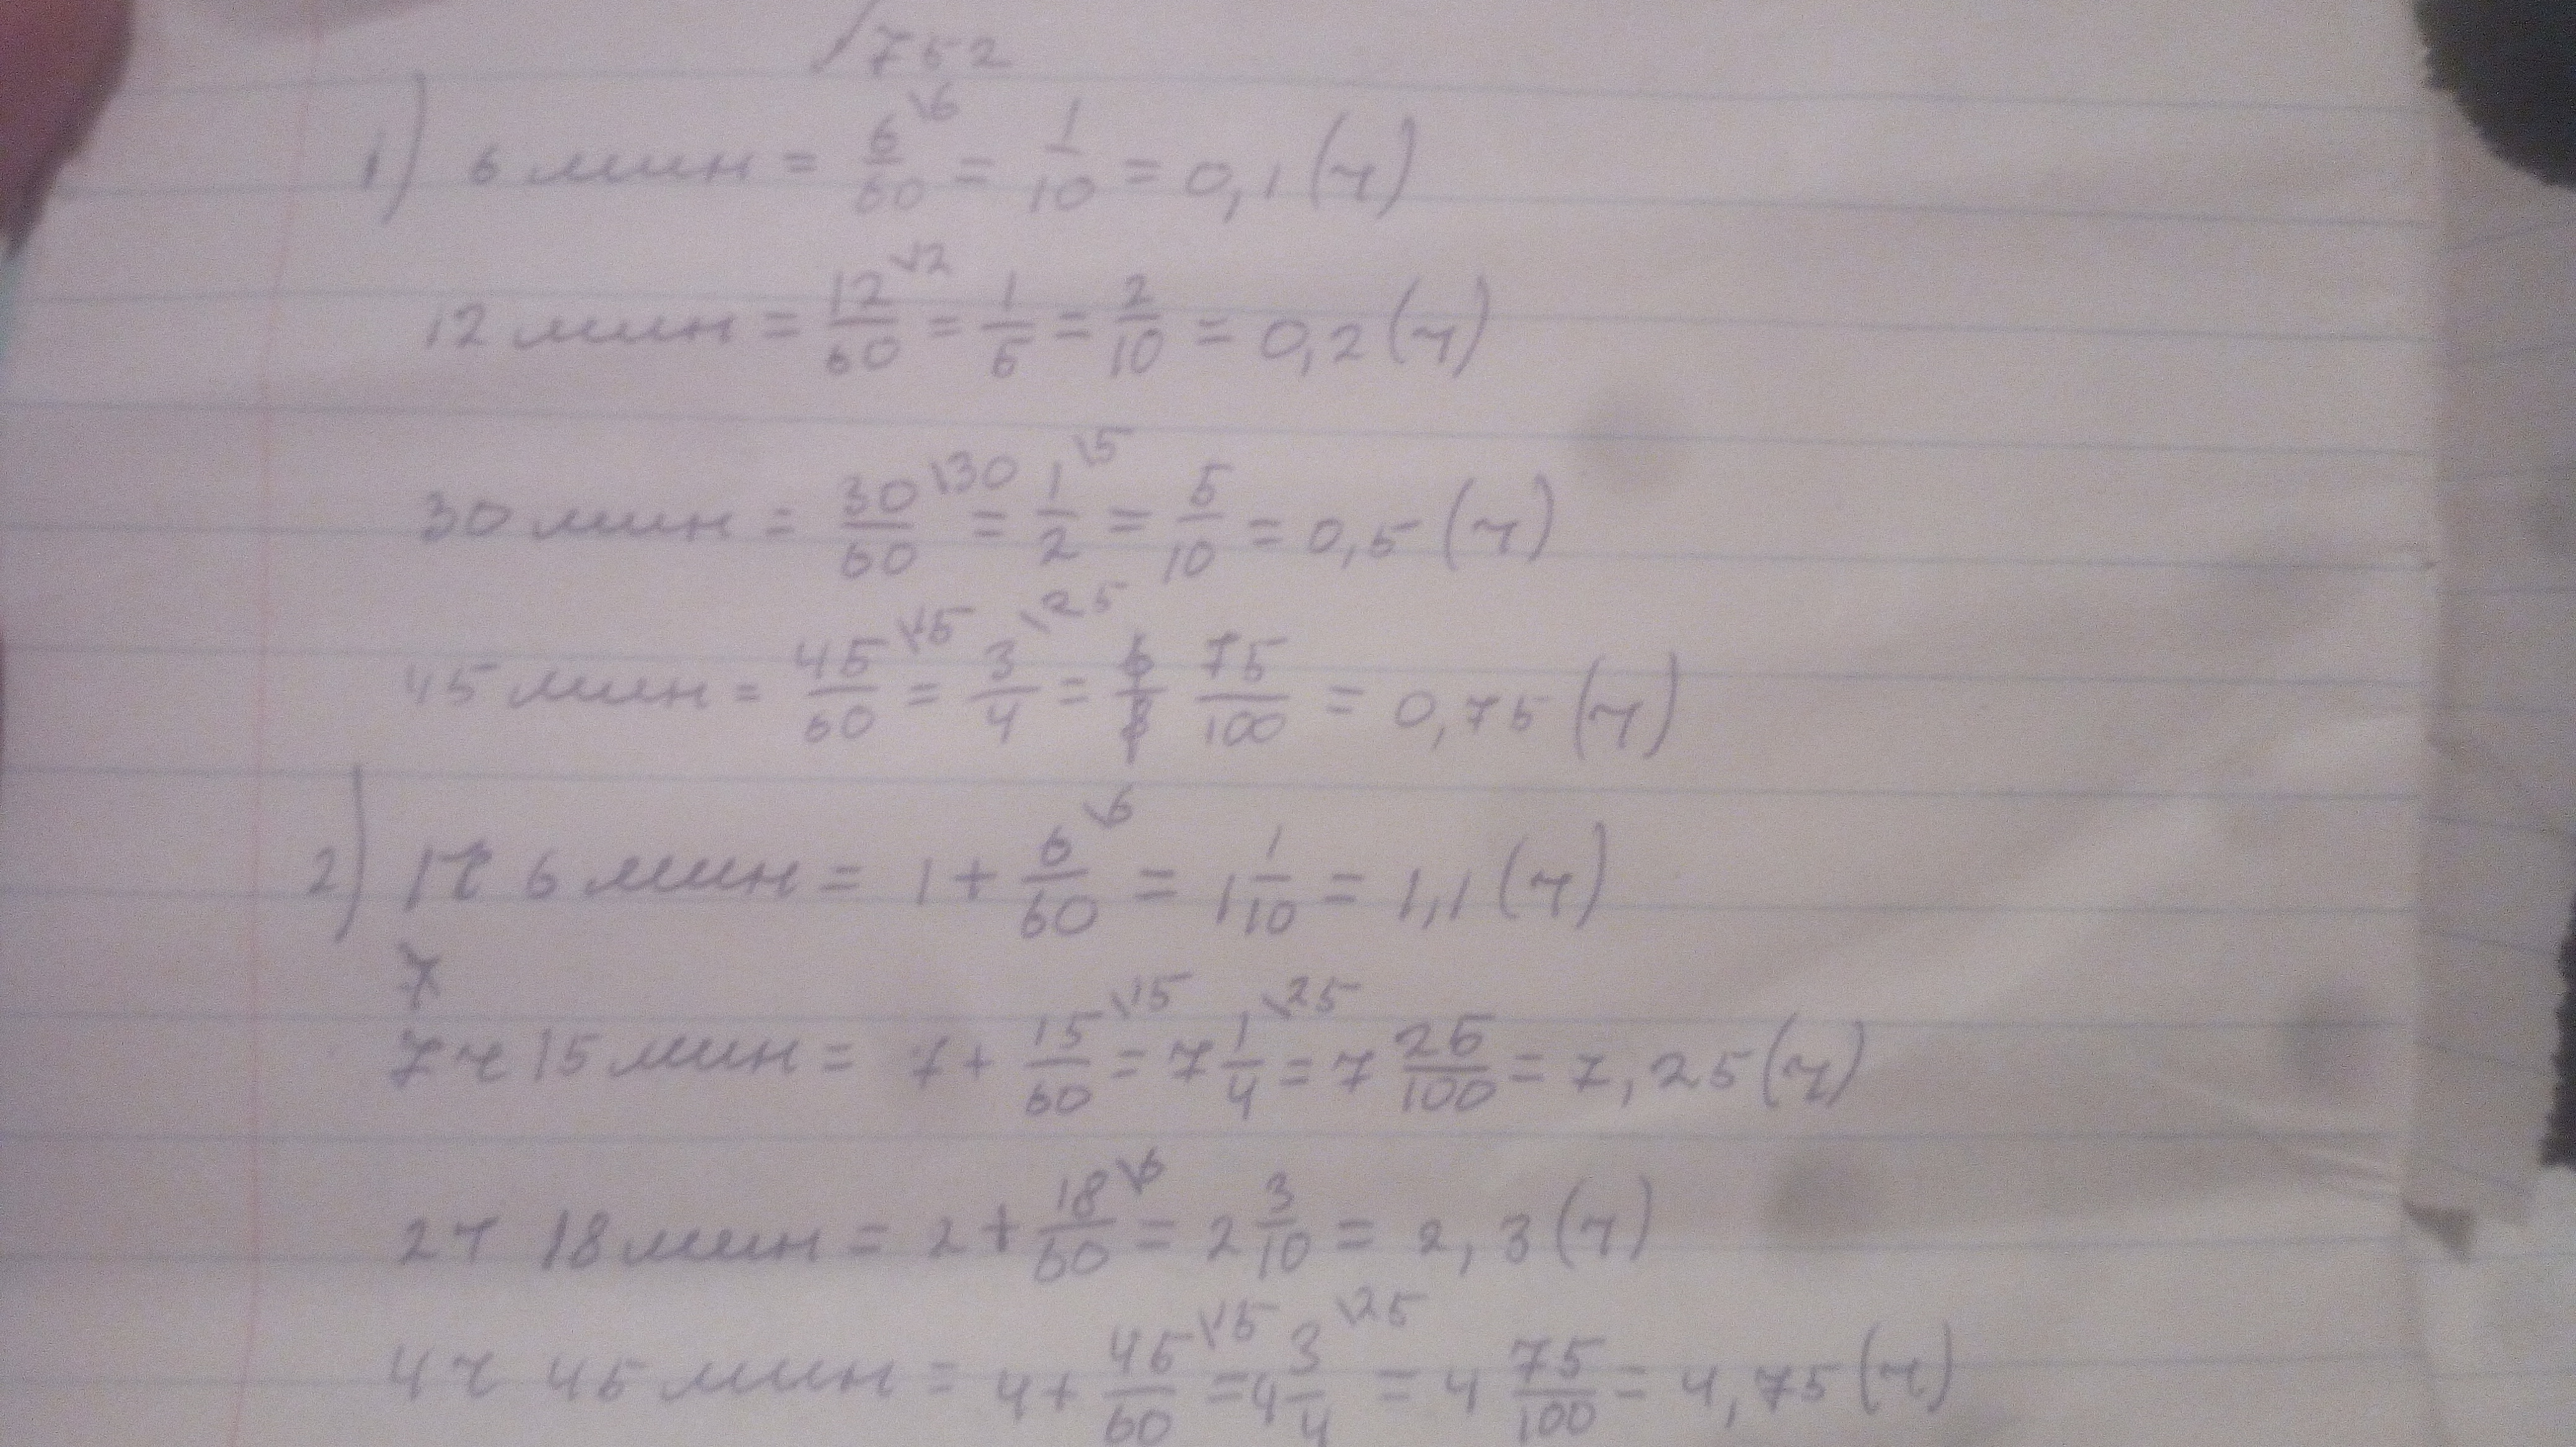 √752
1) 6 мин = 6/60 \6 = 1/10 = 0,1 (ч)
12 мин = 12/60 \12 = 1/5 = 2/10 = 0,2 (ч)
30 мин = 30/60 \30 = 1/2 \5 = 5/10 = 0,5 (ч)
45 мин = 45/60 \15 = 3/4 \25 = 6/8 75/100 = 0,75 (ч)
2) 1ч 6 мин = 1 + 6/60 \6 = 1 1/10 = 1,1 (ч)
7
7ч 15 мин = 7 + 15/60 \15 = 7 1/4 \25 = 7 25/100 = 7,25 (ч)
2ч 18 мин = 2 + 18/60 \6 = 2 3/10 = 2,3 (ч)
4ч 45 мин = 4 + 45/60 \15 = 4 3/4 \25 = 4 75/100 = 4,75 (ч)